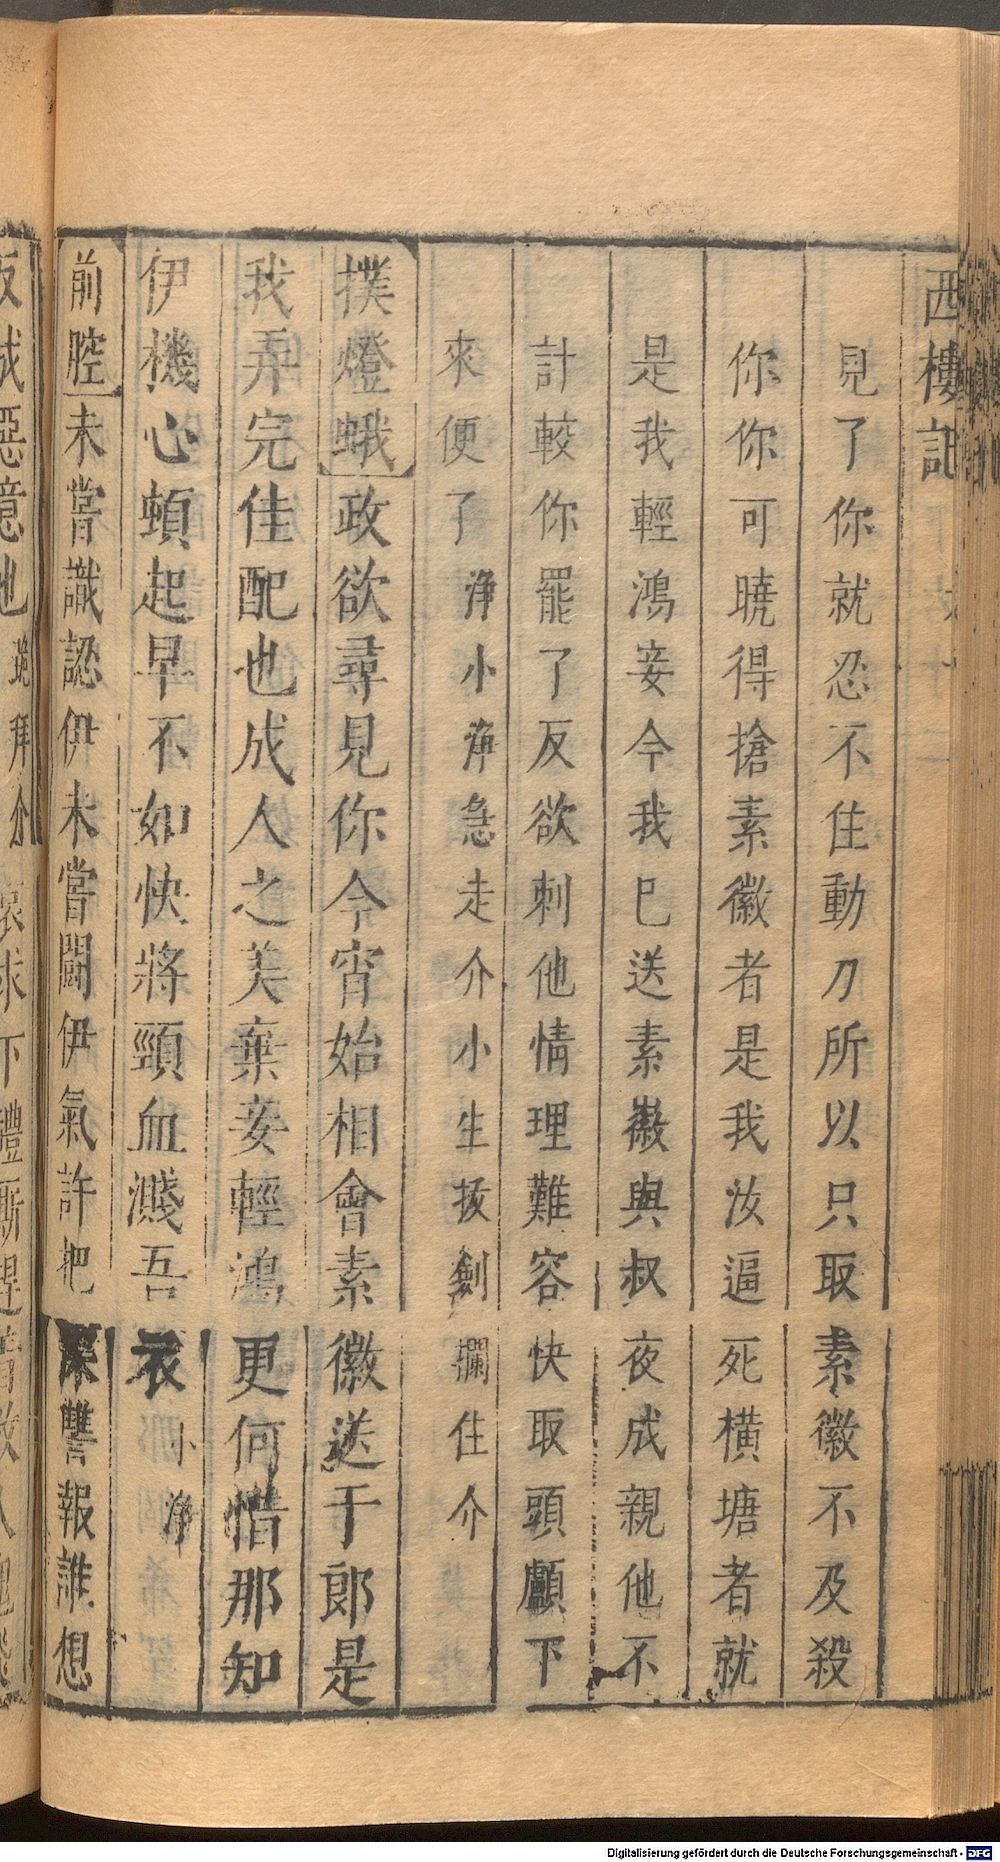 西樓記
見了你就忍不住動刀所以只取素徽不及殺
你你可曉得搶素徽者是我汝逼死橫塘者就
是我輕鴻妾今我已送素徽與叔夜成親他不
計較你罷了反欲刺他情理難容快取頭顱下
來便了淨小淨急走介小生拔劍攔住介
撲燈蛾政欲尋見你今宵始相會素徽送于郎是
我弄完佳配也成人之美棄妾輕鴻更何惜那知
伊機心頓起早不如快將頸血濺吾衣小淨
前腔未嘗識認伊未嘗鬬伊氣許把深讐報誰想
反成惡意也跪拜介哀求下體
Digitalisierung gefördert durch die Deutsche Forschungsgemeinschaft - DFG